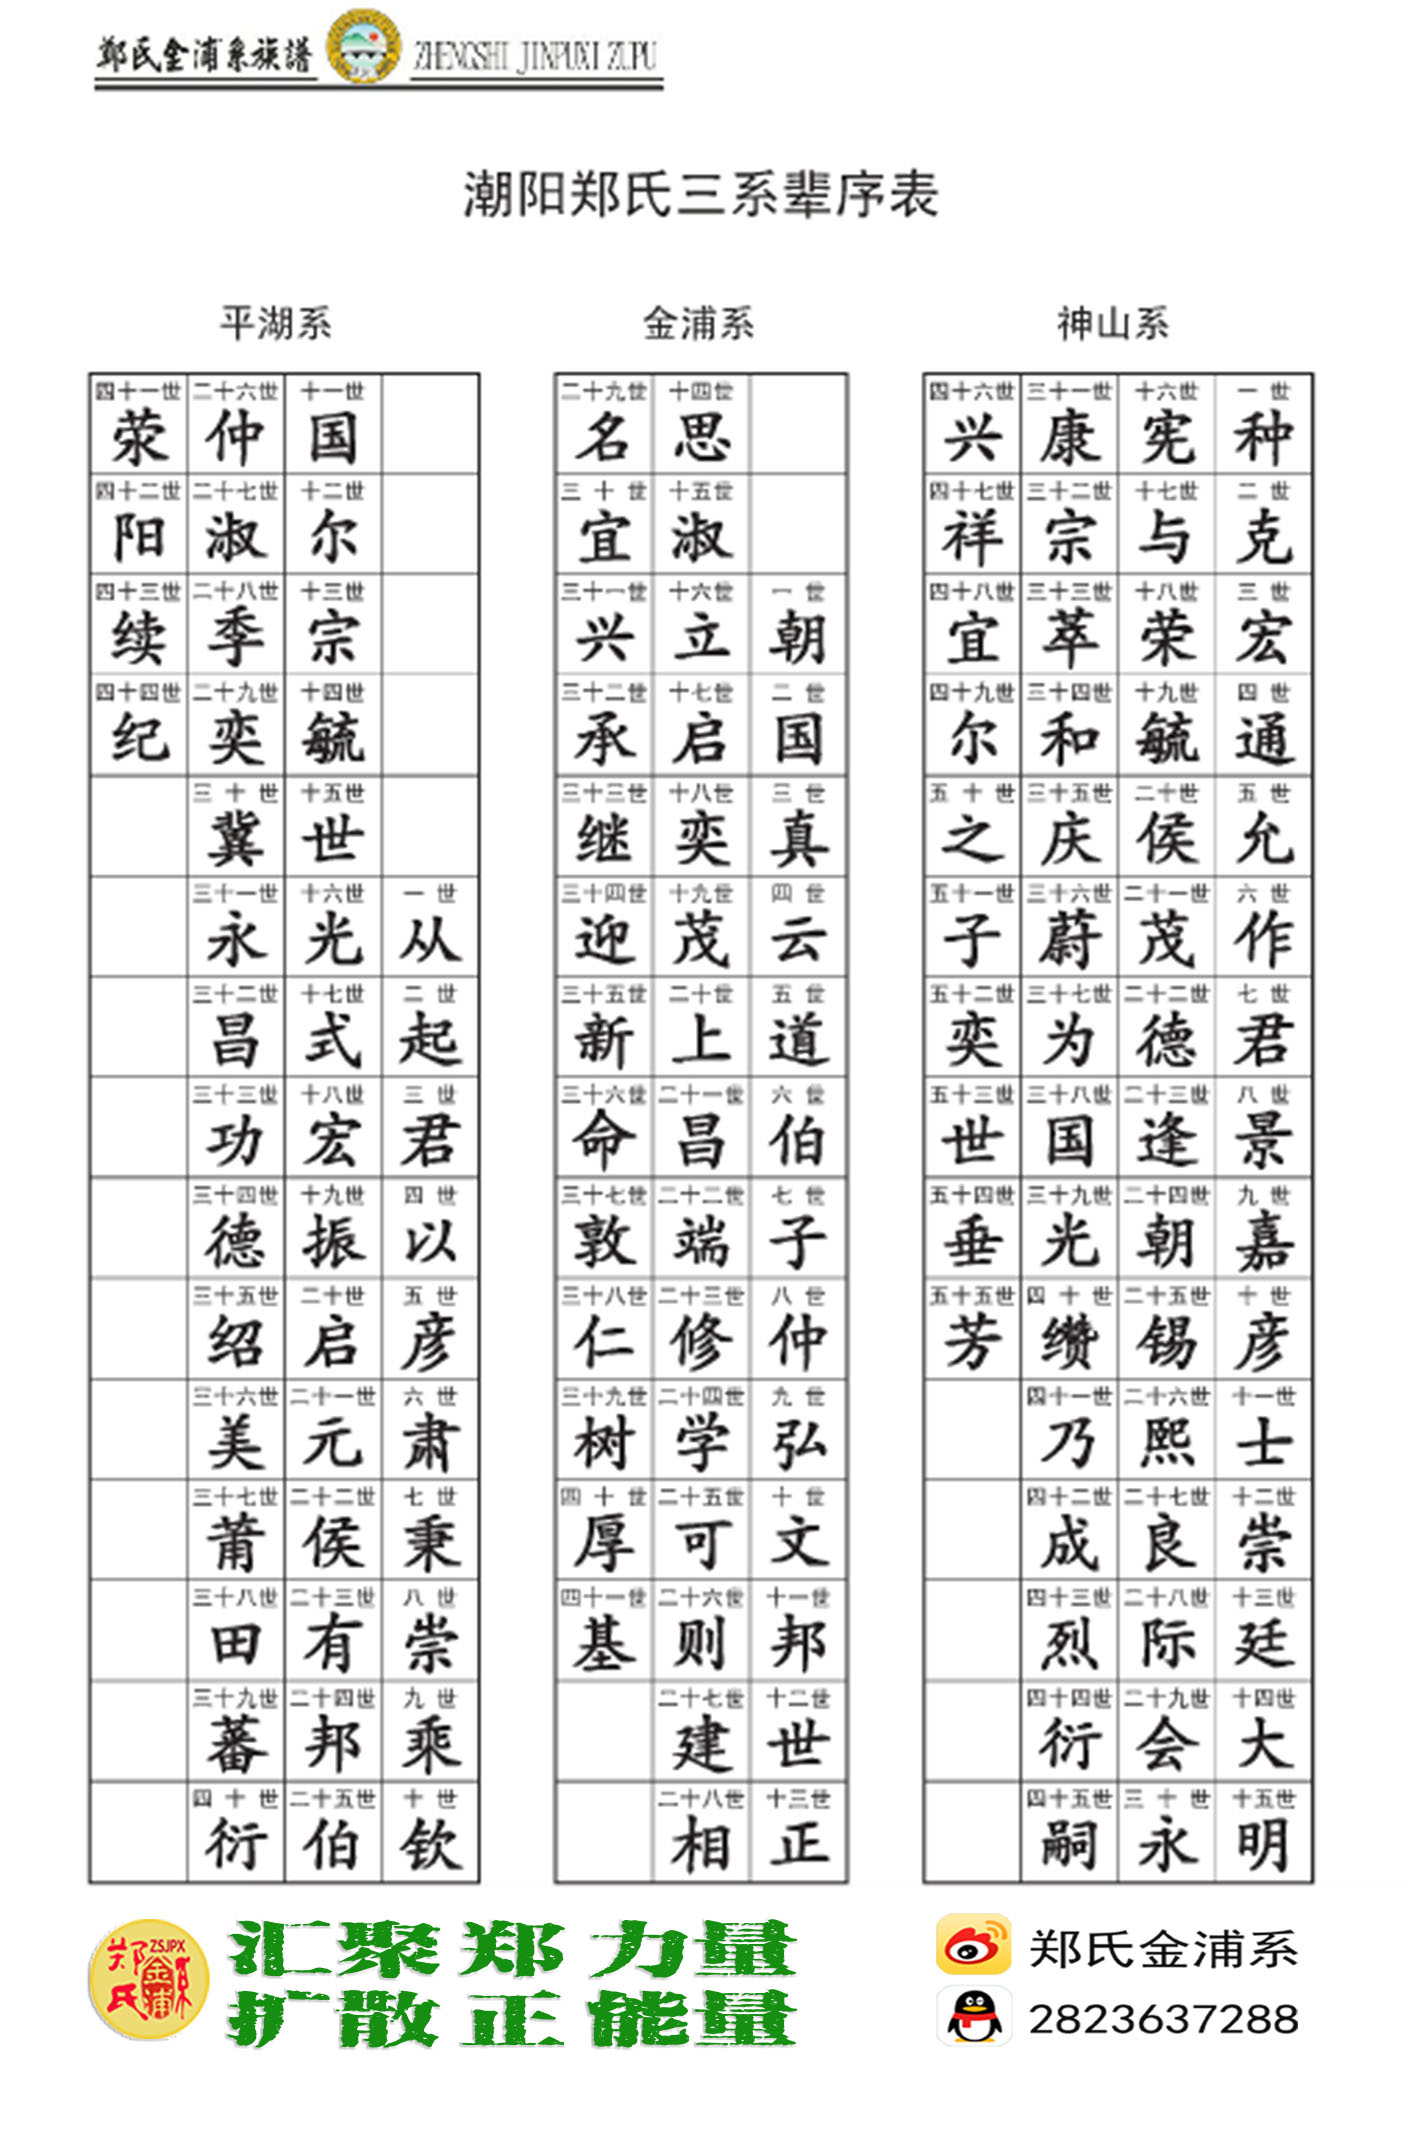 郑氏金浦系族譜 ZHENGSHI JINPUXI ZUPU
潮阳郑氏三系辈序表
平湖系 金浦系 神山系
四十一世 二十六世 十一世 二十九世 十四世 四十六世 三十一世 十六世 一世
荥 仲 国 名 思 兴 康 宪 种
四十二世 二十七世 十二世 三十世 十五世 四十七世 三十二世 十七世 二世
阳 淑 尔 宜 淑 祥 宗 与 克
四十三世 二十八世 十三世 三十一世 十六世 一世 四十八世 三十三世 十八世 三世
续 季 宗 兴 立 朝 宜 萃 荣 宏
四十四世 二十九世 十四世 三十二世 十七世 二世 四十九世 三十四世 十九世 四世
纪 奕 毓 承 启 国 尔 和 毓 通
三十世 十五世 三十三世 十八世 三世 五十世 三十五世 二十世 五世
冀 世 继 奕 真 之 庆 侯 允
三十一世 十六世 一世 三十四世 十九世 四世 五十一世 三十六世 二十一世 六世
永 光 从 迎 茂 云 子 蔚 茂 作
三十二世 十七世 二世 三十五世 二十世 五世 五十二世 三十七世 二十二世 七世
昌 式 起 新 上 道 奕 为 德 君
三十三世 十八世 三世 三十六世 二十一世 六世 五十三世 三十八世 二十三世 八世
功 宏 君 命 昌 伯 世 国 逢 景
三十四世 十九世 四世 三十七世 二十二世 七世 五十四世 三十九世 二十四世 九世
德 振 以 敦 端 子 垂 光 朝 嘉
三十五世 二十世 五世 三十八世 二十三世 八世 五十五世 四十世 二十五世 十世
绍 启 彦 仁 修 仲 芳 缵 锡 彦
三十六世 二十一世 六世 三十九世 二十四世 九世 四十一世 二十六世 十一世
美 元 肃 树 学 弘 乃 熙 士
三十七世 二十二世 七世 四十世 二十五世 十世 四十二世 二十七世 十二世
莆 侯 秉 厚 可 文 成 良 崇
三十八世 二十三世 八世 四十一世 二十六世 十一世 四十三世 二十八世 十三世
田 有 崇 基 则 邦 烈 际 廷
三十九世 二十四世 九世 二十七世 十二世 四十四世 二十九世 十四世
蕃 邦 乘 建 世 衍 会 大
四十世 二十五世 十世 二十八世 十三世 四十五世 三十世 十五世
衍 伯 钦 相 正 嗣 永 明
郑氏 ZSJPX 金浦 系
汇聚郑力量
扩散正能量
郑氏金浦系
2823637288